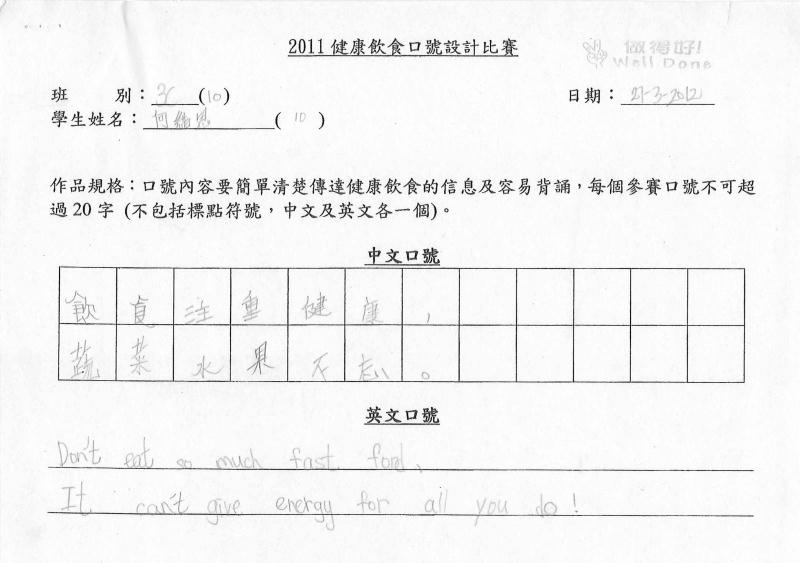 2011健康飲食口號設計比賽
做得好!
Well Done
班 別:3C(10)
日期:27-3-2012
學生姓名:何 ( 10 )
作品規格:口號內容要簡單清楚傳達健康飲食的信息及容易背誦,每個參賽口號不可超
過20字 (不包括標點符號,中文及英文各一個)。
中文口號
飲食注重健康,
蔬菜水果不忘。
英文口號
Don't eat so much fast ford,
It can't give energy for all you do!